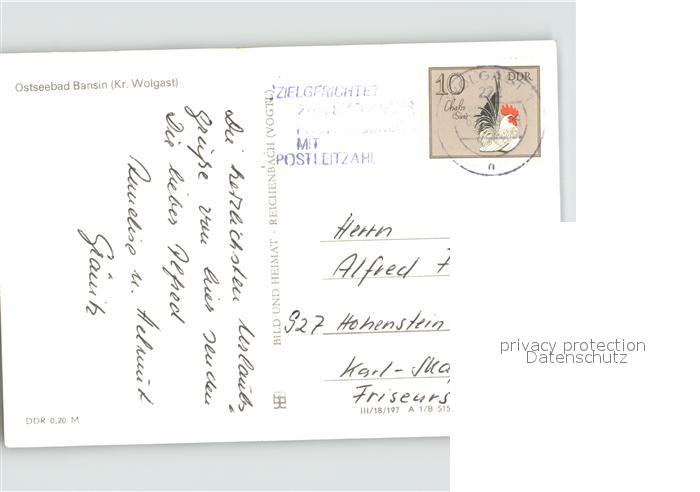 Ostseebad Bansin (Kr. Wolgast)
ZIELGERICHTET
MIT
POSTLEITZAHL
10 DDR
Chabo
WOLGAST 1
222
n
Die herzlichsten Urlaubs-
grüße von hier senden
Dir lieber Alfred
Annelise u. Helmut
Glänitz
BILD UND HEIMAT · REICHENBACH (VOGTL)
Herrn
Alfred
927 Hohenstein
Karl-Ma
Friseurs
III/18/197 A 1/B 515
DDR 0,20 M
privacy protection
Datenschutz